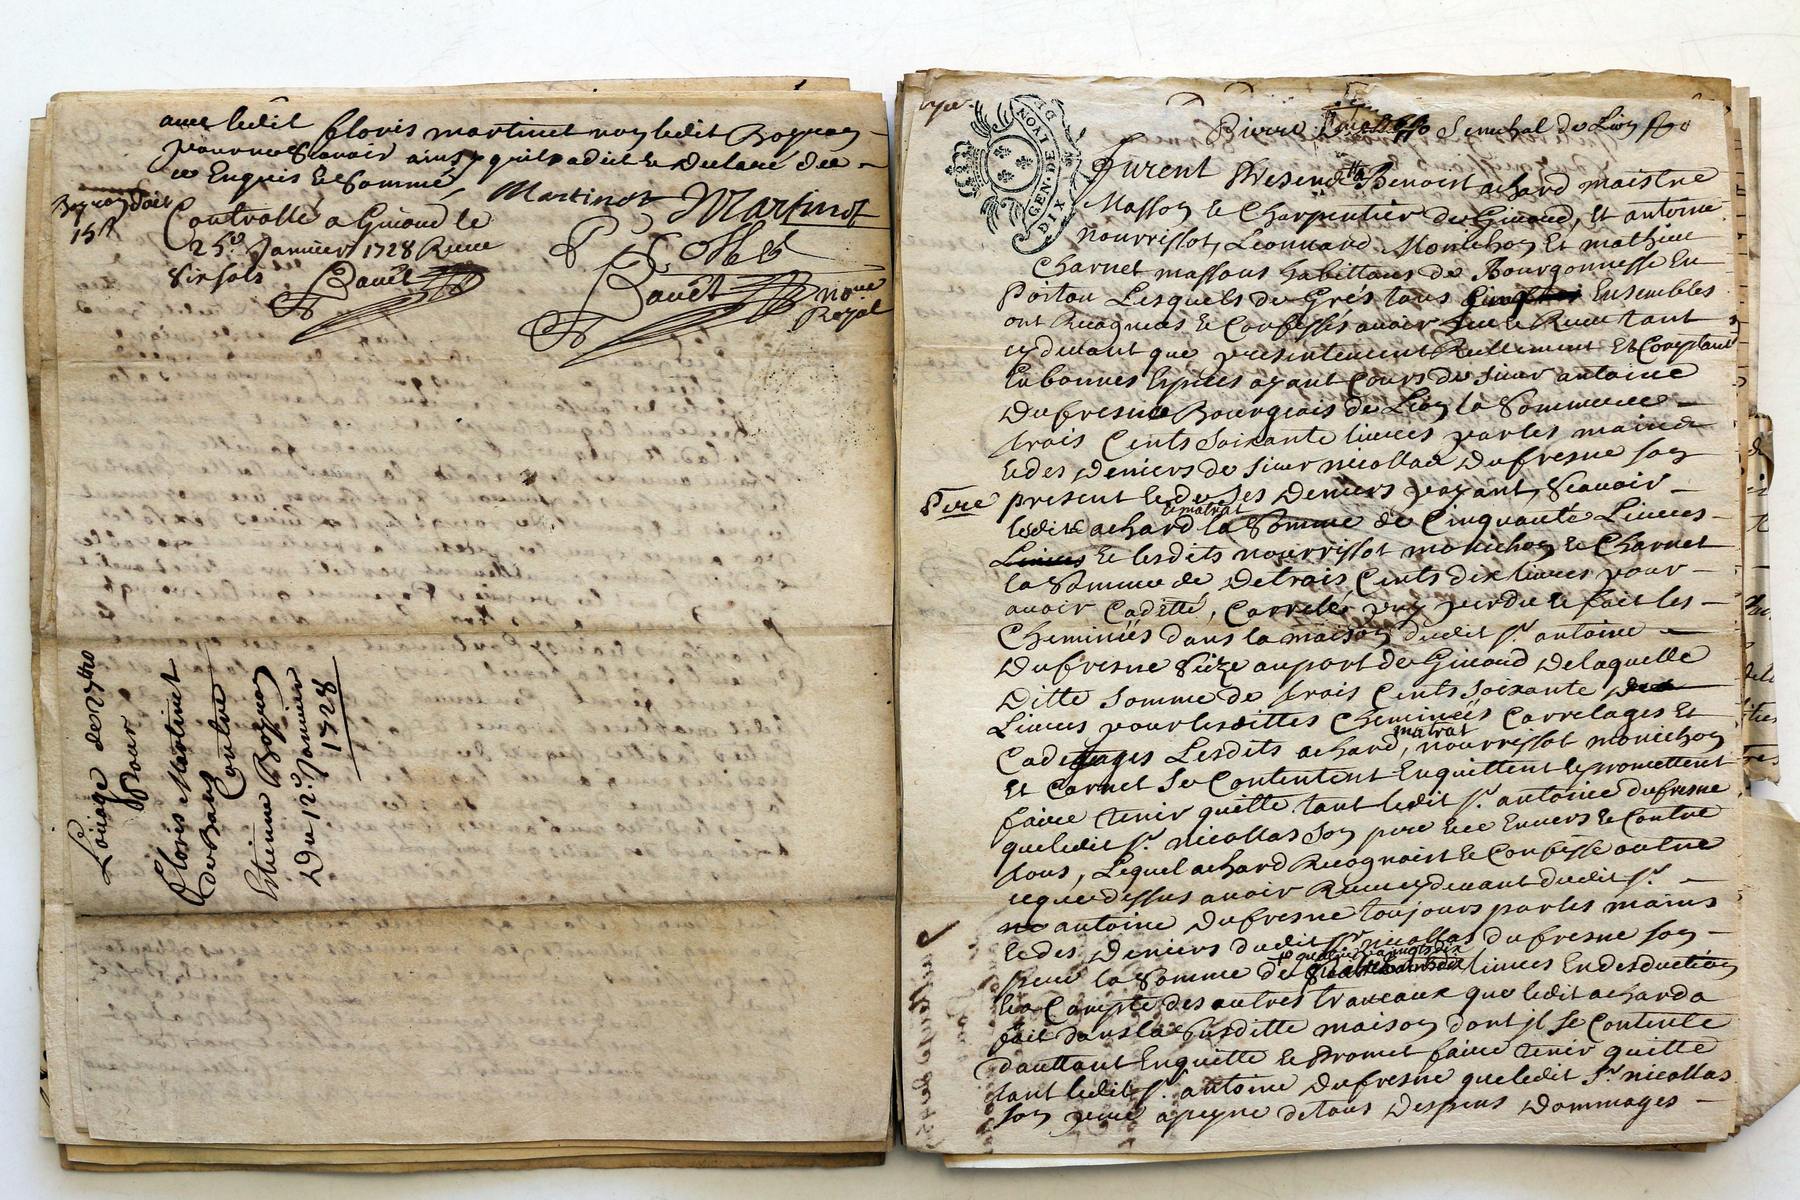 avec ledit Floris martinet non ledit Boznon
pour ne scavoir ainsy quil a dit et declaré de
ce Enquis et Sommé
Martinot Martinot
Bozon doit
15 s
Controllé a Givord le
25e Janvier 1728 Receu
six sols
Bauët
Bauët
no.re
Royal
Loüage de
Pour
Floris Martinet
Contre
Estienne Bozon
Du 12e Janvier
1728
GEN. DE LYON
DIX
Pierre Senechal de Lion
furent Presents Benoist achard maistre
Masson et Charpentier de Givord, et antoine
nourrissot, Leonnard Monichon et mathieu
Charnet massons habittans de Bourgonnesse En
Poitou Lesquels de Grés tous Ensembles
ont Recognus et Confessés avoir heu et Receu tant
cy devant que presentement Reellement Et Comptant
En bonnes Especes ayant Cours de sieur antoine
Dufresne Bourgeois de Lion la Somme de
trois Cents soixante livres par les mains
et des deniers de sieur nicollas Dufresne son
Pere present et de ses deniers payant, Scavoir
lesdits achard matrat la Somme de Cinquante Livres
Livres et lesdits nourrissot monichon et Charnet
la Somme de De trois Cents dix livres pour
avoir Cadetté, Carrelés et fait les
Cheminéés dans la maison dudit sr. antoine
Dufresne Size au port de Givord De laquelle
Ditte somme de trois Cents soixante
Livres pour lesdittes Cheminéés Carrelages et
Cadettages Lesdits achard, matrat nourrissot monichon
Et Carnet Se Contentent Enquittent et promettent
faire tenir quitte tant ledit sr. antoine dufresne
que ledit sr. nicollas son pere Envers et Contre
tous, Lequel achard Recognoist et Confesse outre
ce que dessus avoir Receu cy devant dudit sr.
antoine Dufresne toujours par les mains
et des deniers dudit sr nicollas dufresne son
pere la Somme de quatre vingts dix livres En desduction
et a Compte des autres travaux que ledit achard a
fait dans la susditte maison dont jl se Contente
dauttant Enquitte et Promet faire tenir quitte
tant ledit sr. antoine Dufresne que ledit sr nicollas
son pere a peyne de tous Despens Dommages